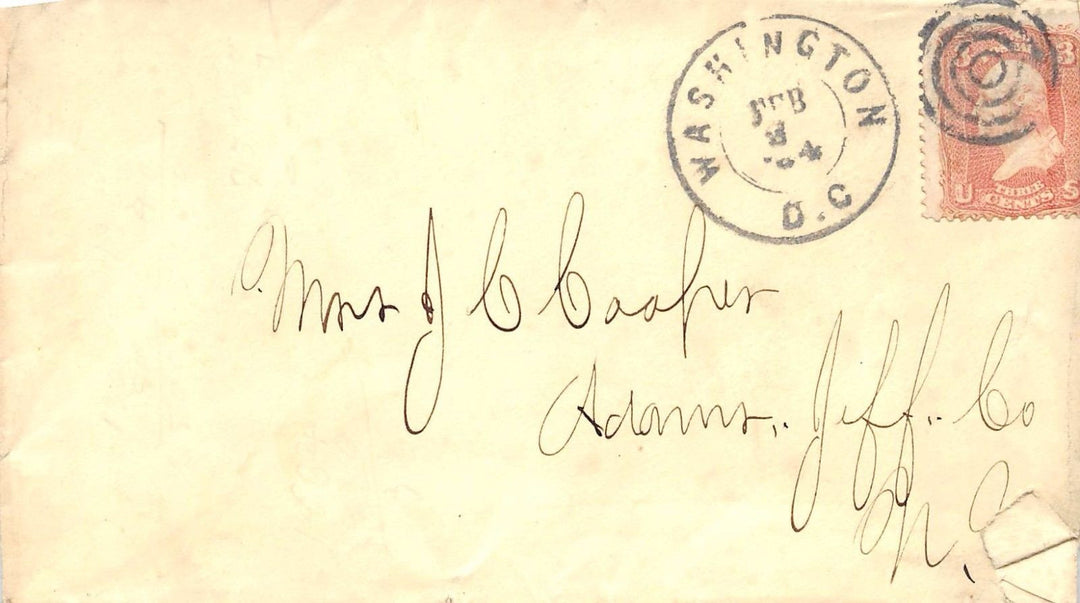 WASHINGTON D.C
FEB
'64
3
U S
THREE
CENTS
Mrs J C Cooper
Adams, Jeff. Co
N.